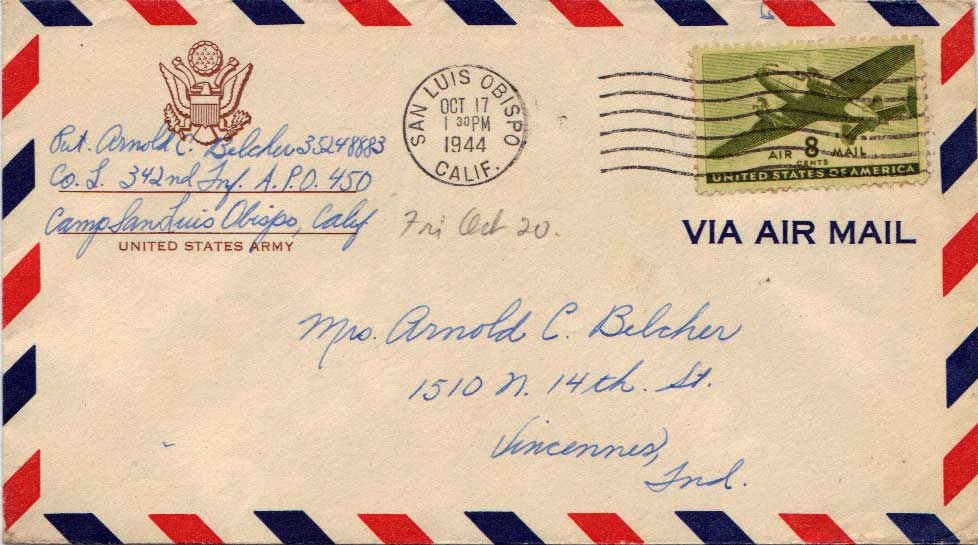 Pvt. Arnold C. Belcher 35248883
Co. L. 342nd Inf. A.P.O. 450
Camp San Luis Obispo, Calif
UNITED STATES ARMY
SAN LUIS OBISPO
OCT 17
1 30 PM
1944
CALIF.
Fri Oct 20.
AIR 8 MAIL
CENTS
UNITED STATES OF AMERICA
VIA AIR MAIL
Mrs. Arnold C. Belcher
1510 N. 14th. St.
Vincennes,
Ind.